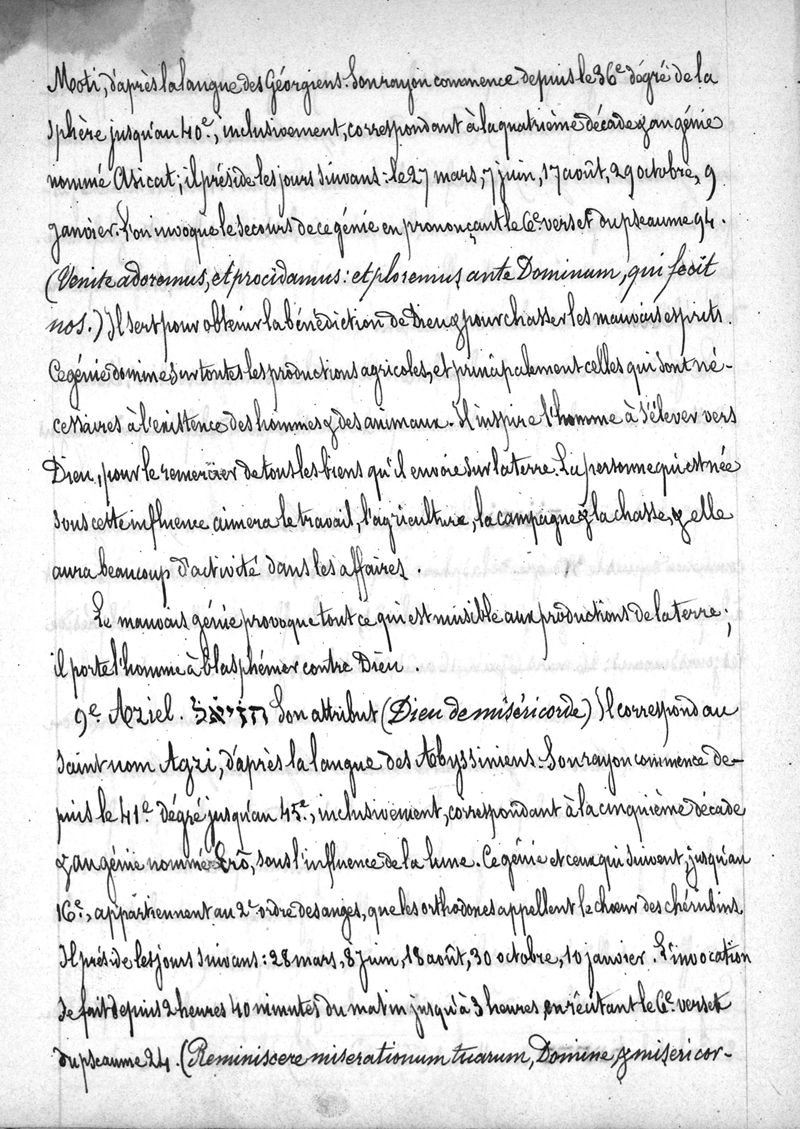 Moti, d'après la langue des Géorgiens. Son rayon commence depuis le 36e dégré de la
sphère jusqu'au 40e, inclusivement, correspondant à la quatrième décade & au génie
nommé Asicat; il préside les jours suivans: le 27 mars, 7 juin, 17 août, 29 octobre, 9
janvier. L'on invoque le secours de ce génie en prononçant le 6e verset du pseaume 94.
(Venite adoremus, et procidamus: et ploremus ante Dominum, qui fecit
nos.) Il sert pour obtenir la bénédiction de Dieu & pour chasser les mauvais esprits.
Ce génie domine sur toutes les productions agricoles, et principalement celles qui sont né-
cessaires à l'existence des hommes & des animaux. Il inspire l'homme à s'élever vers
Dieu, pour le remercier de tous les biens qu'il envoie sur la terre. La personne qui est née
sous cette influence aimera le travail, l'agriculture, la campagne & la chasse, & elle
aura beaucoup d'activité dans les affaires.
Le mauvais génie provoque tout ce qui est nuisible aux productions de la terre;
il porte l'homme à blasphémer contre Dieu.
9e Aziel. הזיאל Son attribut (Dieu de miséricorde) Il correspond au
saint nom Agzi, d'après la langue des Abyssiniens. Son rayon commence de-
puis le 41e dégré jusqu'au 45e, inclusivement, correspondant à la cinquième décade
& au génie nommé Erô, sous l'influence de la lune. Ce génie et ceux qui suivent, jusqu'au
16e, appartiennent au 2e ordre des anges, que les orthodoxes appellent le chœur des chérubins.
Il préside les jours suivans: 28 mars, 8 juin, 18 août, 30 octobre, 10 janvier. L'invocation
se fait depuis 2 heures 40 minutes du matin jusqu'à 3 heures, en récitant le 6e verset
du pseaume 24. (Reminiscere miserationum tuarum, Domine, & misericor-